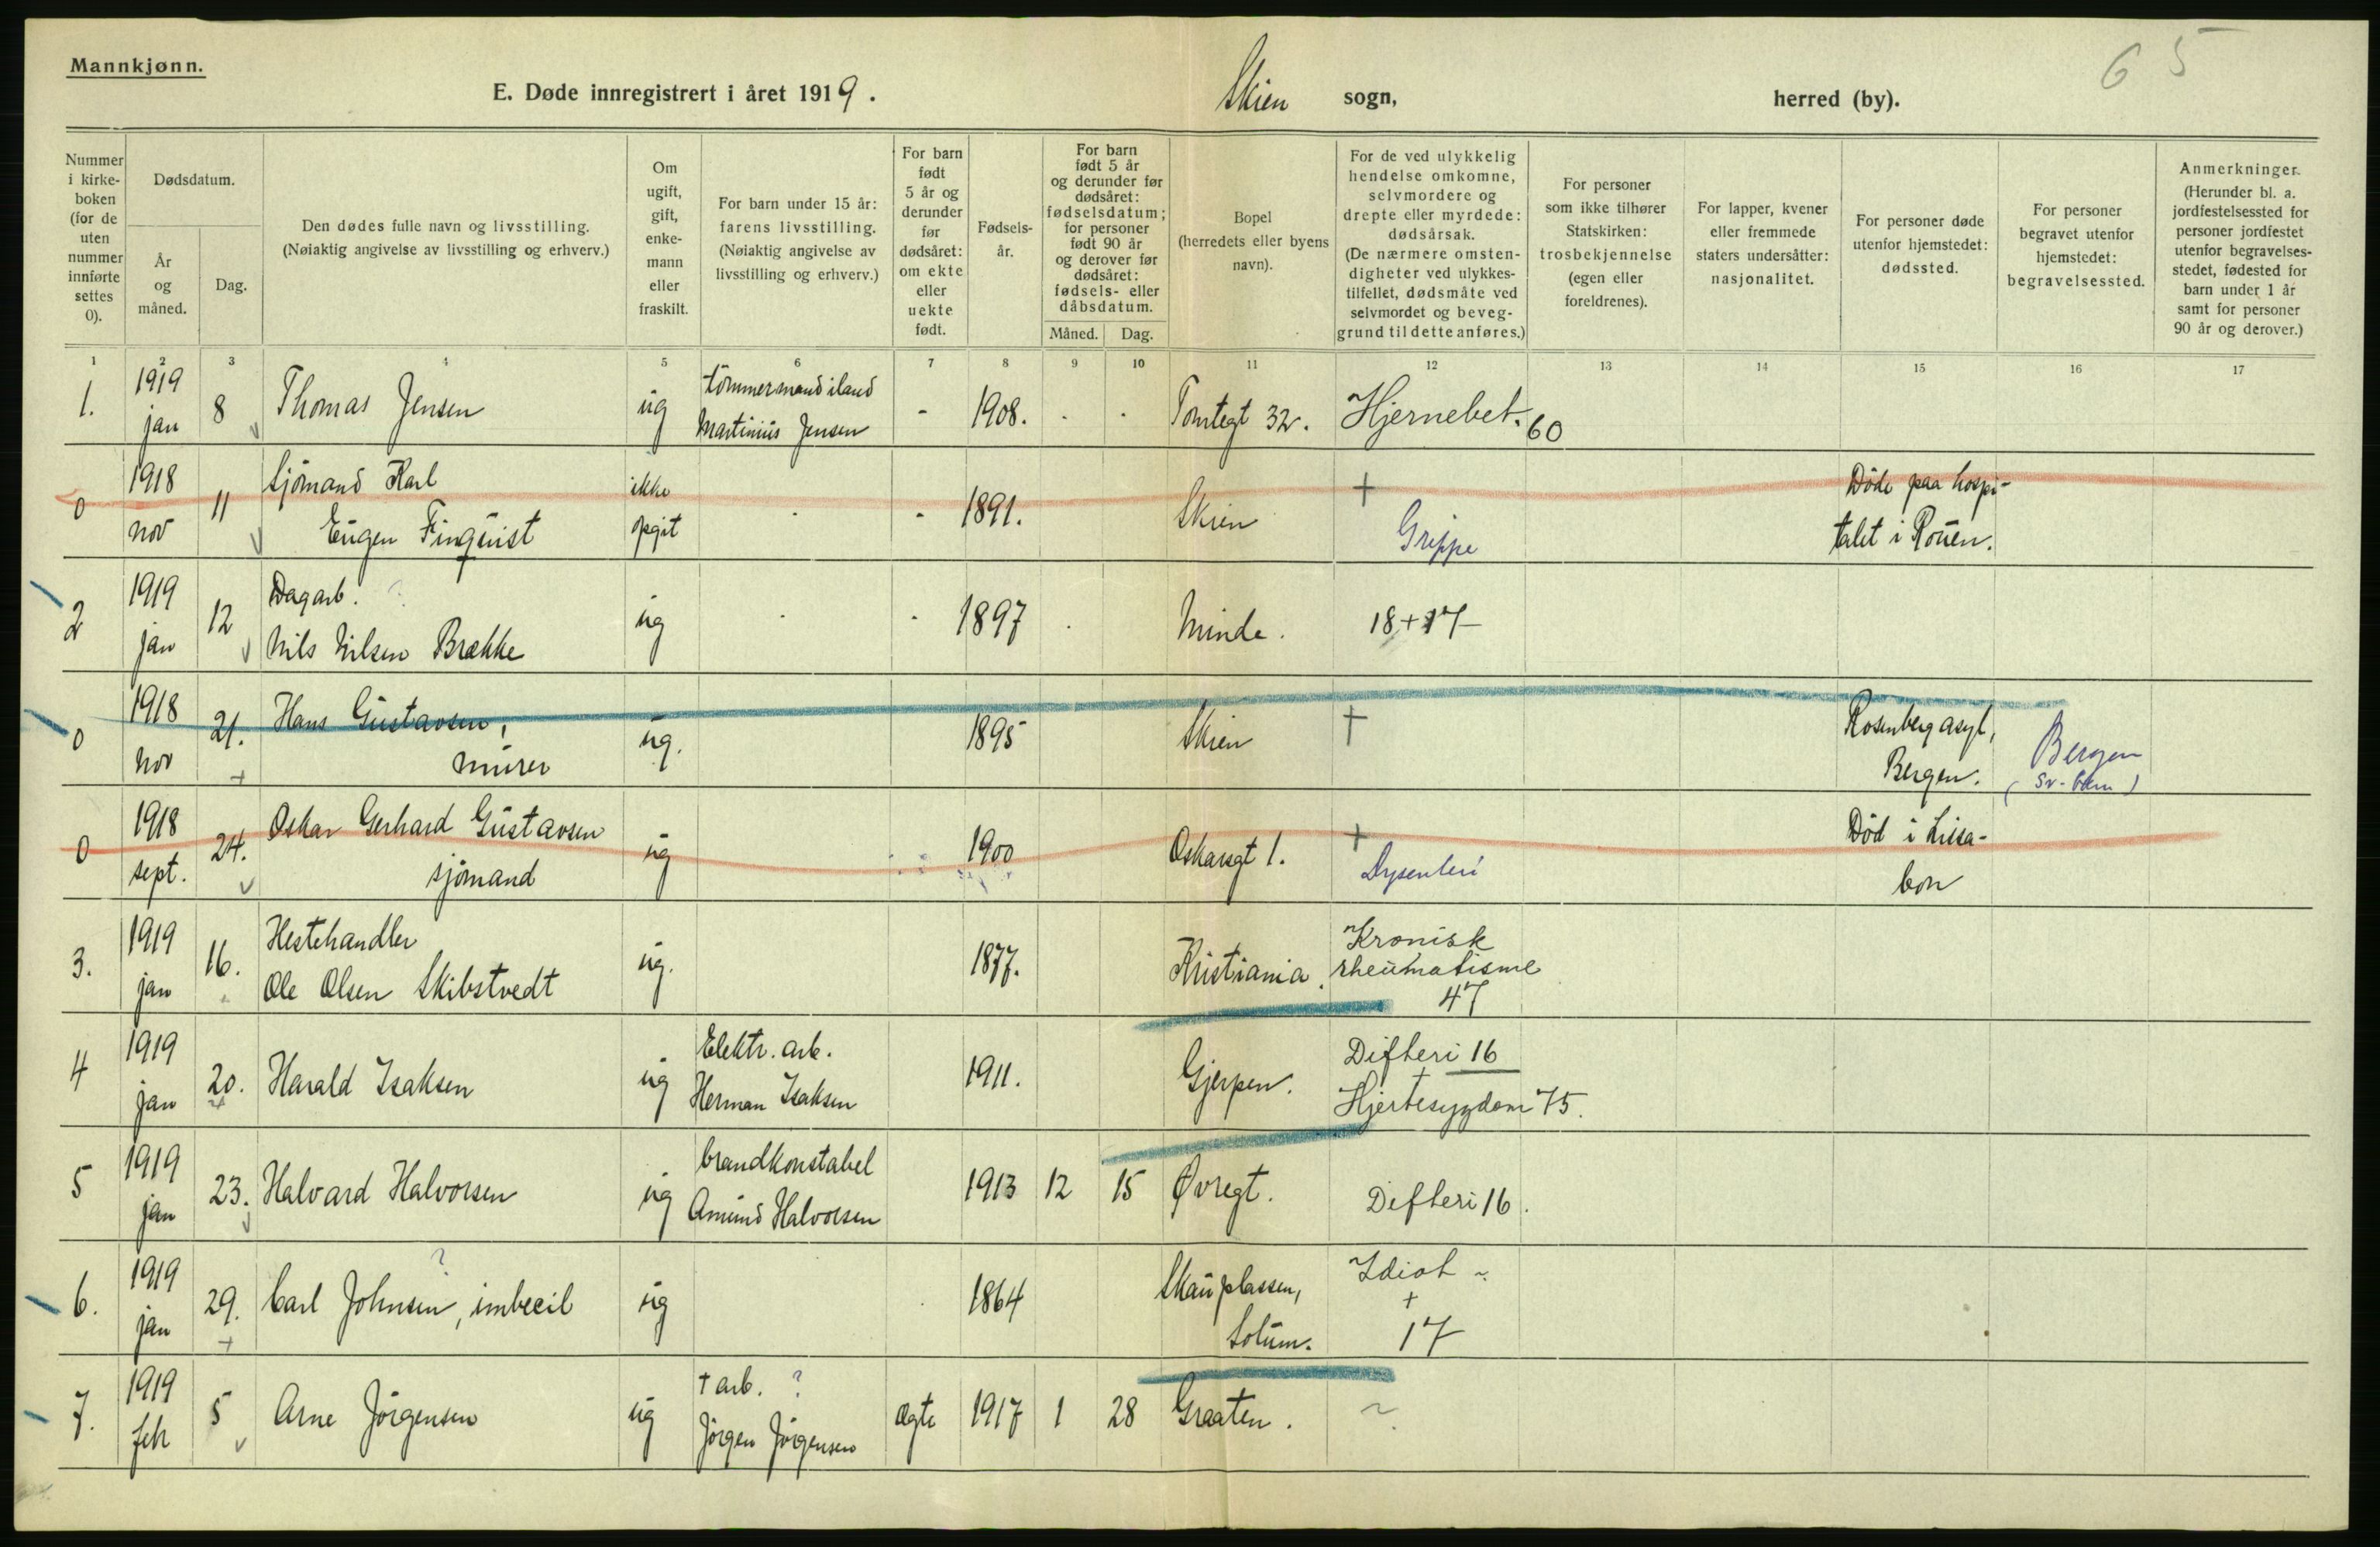 Mannkjønn.
6 5
E. Døde innregistrert i året 1919.
Skien sogn,
herred (by).
Nummer i kirke- boken (for de uten nummer innførte settes 0).
Dødsdatum.
År og måned.
Dag.
Den dødes fulle navn og livsstilling. (Nøiaktig angivelse av livsstilling og erhverv.)
Om ugift, gift, enke- mann eller fraskilt.
For barn under 15 år: farens livsstilling. (Nøiaktig angivelse av livsstilling og erhverv.)
For barn født 5 år og derunder før dødsåret: om ekte eller uekte født.
Fødsels- år.
For barn født 5 år og derunder før dødsåret: fødselsdatum; for personer født 90 år og derover før dødsåret: fødsels- eller dåbsdatum.
Måned. Dag.
Bopel (herredets eller byens navn).
For de ved ulykkelig hendelse omkomne, selvmordere og drepte eller myrdede: dødsårsak. (De nærmere omsten- digheter ved ulykkes- tilfellet, dødsmåte ved selvmordet og beveg- grund til dette anføres.)
For personer som ikke tilhører Statskirken: trosbekjennelse (egen eller foreldrenes).
For lapper, kvener eller fremmede staters undersåtter: nasjonalitet.
For personer døde utenfor hjemstedet: dødssted.
For personer begravet utenfor hjemstedet: begravelsessted.
Anmerkninger. (Herunder bl. a. jordfestelsessted for personer jordfestet utenfor begravelses- stedet, fødested for barn under 1 år samt for personer 90 år og derover.)
1 2 3 4 5 6 7 8 9 10 11 12 13 14 15 16 17
1. 1919 jan 8 Thomas Jensen ug tömmermand iland Martinius Jensen - 1908. Tomtegt 32. Hjernebet. 60
0 1918 nov 11 Sjömand Karl Eugen Finquist ikke opgit - - 1891. Skien + Grippe Döde paa hospi- talet i Rouen.
2 1919 jan 12 Dagarb. ? Nils Nilsen Brække ug - - 1897 Minde. 18+17
0 1918 nov 21. + Hans Gustavsen, murer ug. 1895 Skien † Rosenberg asyl, Bergen. Bergen
0 1918 sept. 24. Oskar Gerhard Gustavsen sjömand ug 1900 Oskarsgt 1. + Dysenteri Död i Lissa- bon
3. 1919 jan 16. Hestehandler Ole Olsen Skibstvedt ug. 1877. Kristiania. Kronisk rheumatisme 47
4 1919 jan 20. Harald Isaksen ug Elektr. arb. Herman Isaksen 1911. Gjerpen. Difteri 16 + Hjertesygdom 75.
5 1919 jan 23. Halvard Halvorsen ug brandkonstabel Amund Halvorsen 1913 12 15 Øvregt. Difteri 16.
6. 1919 jan 29. + Carl Johnsen, imbecil ? ug 1864 Skauplassen, Solum. Idiot ~ + 17
7. 1919 feb 5 Arne Jörgensen ug † arb. ? Jörgen Jörgensen ægte 1917 1 28 Graaten. ~